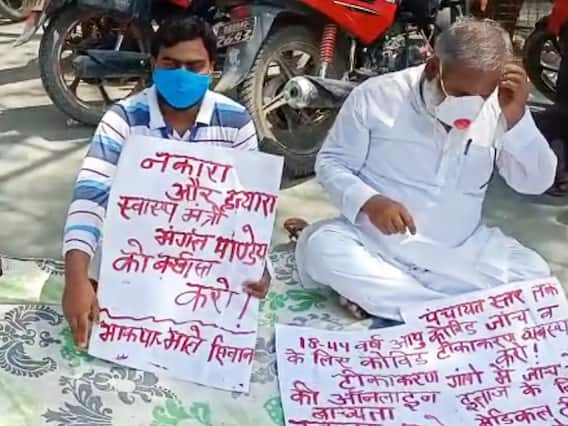 नकारा
और हत्यारा
स्वास्थ मंत्री
मंगल पाण्डेय
को बर्खास्त
करो!
भाकपा-माले सिवान
पंचायत स्तर तक
18-44 वर्ष आयु कोविड जाँच व
के लिए कोविड टीकाकरण व्यवस्था
करो!
टीकाकरण गांवो में जाँच
की ऑनलाइन इलाज के लि
बाध्यता मेडिकल टी